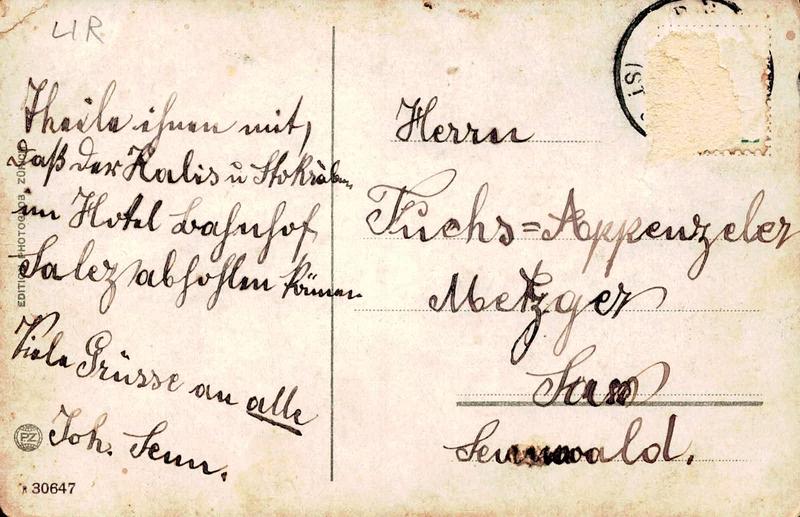 Theile ihnen mit,
daß der Kalis u
im Hotel Bahnhof
Salez abhohlen können
Viele Grüsse an alle
Joh. Senn.
Herrn
Fuchs=Appenzeler
Metzger
Sennwald.
EDITION PHOTOGLOB, ZÜRICH
PZ
30647